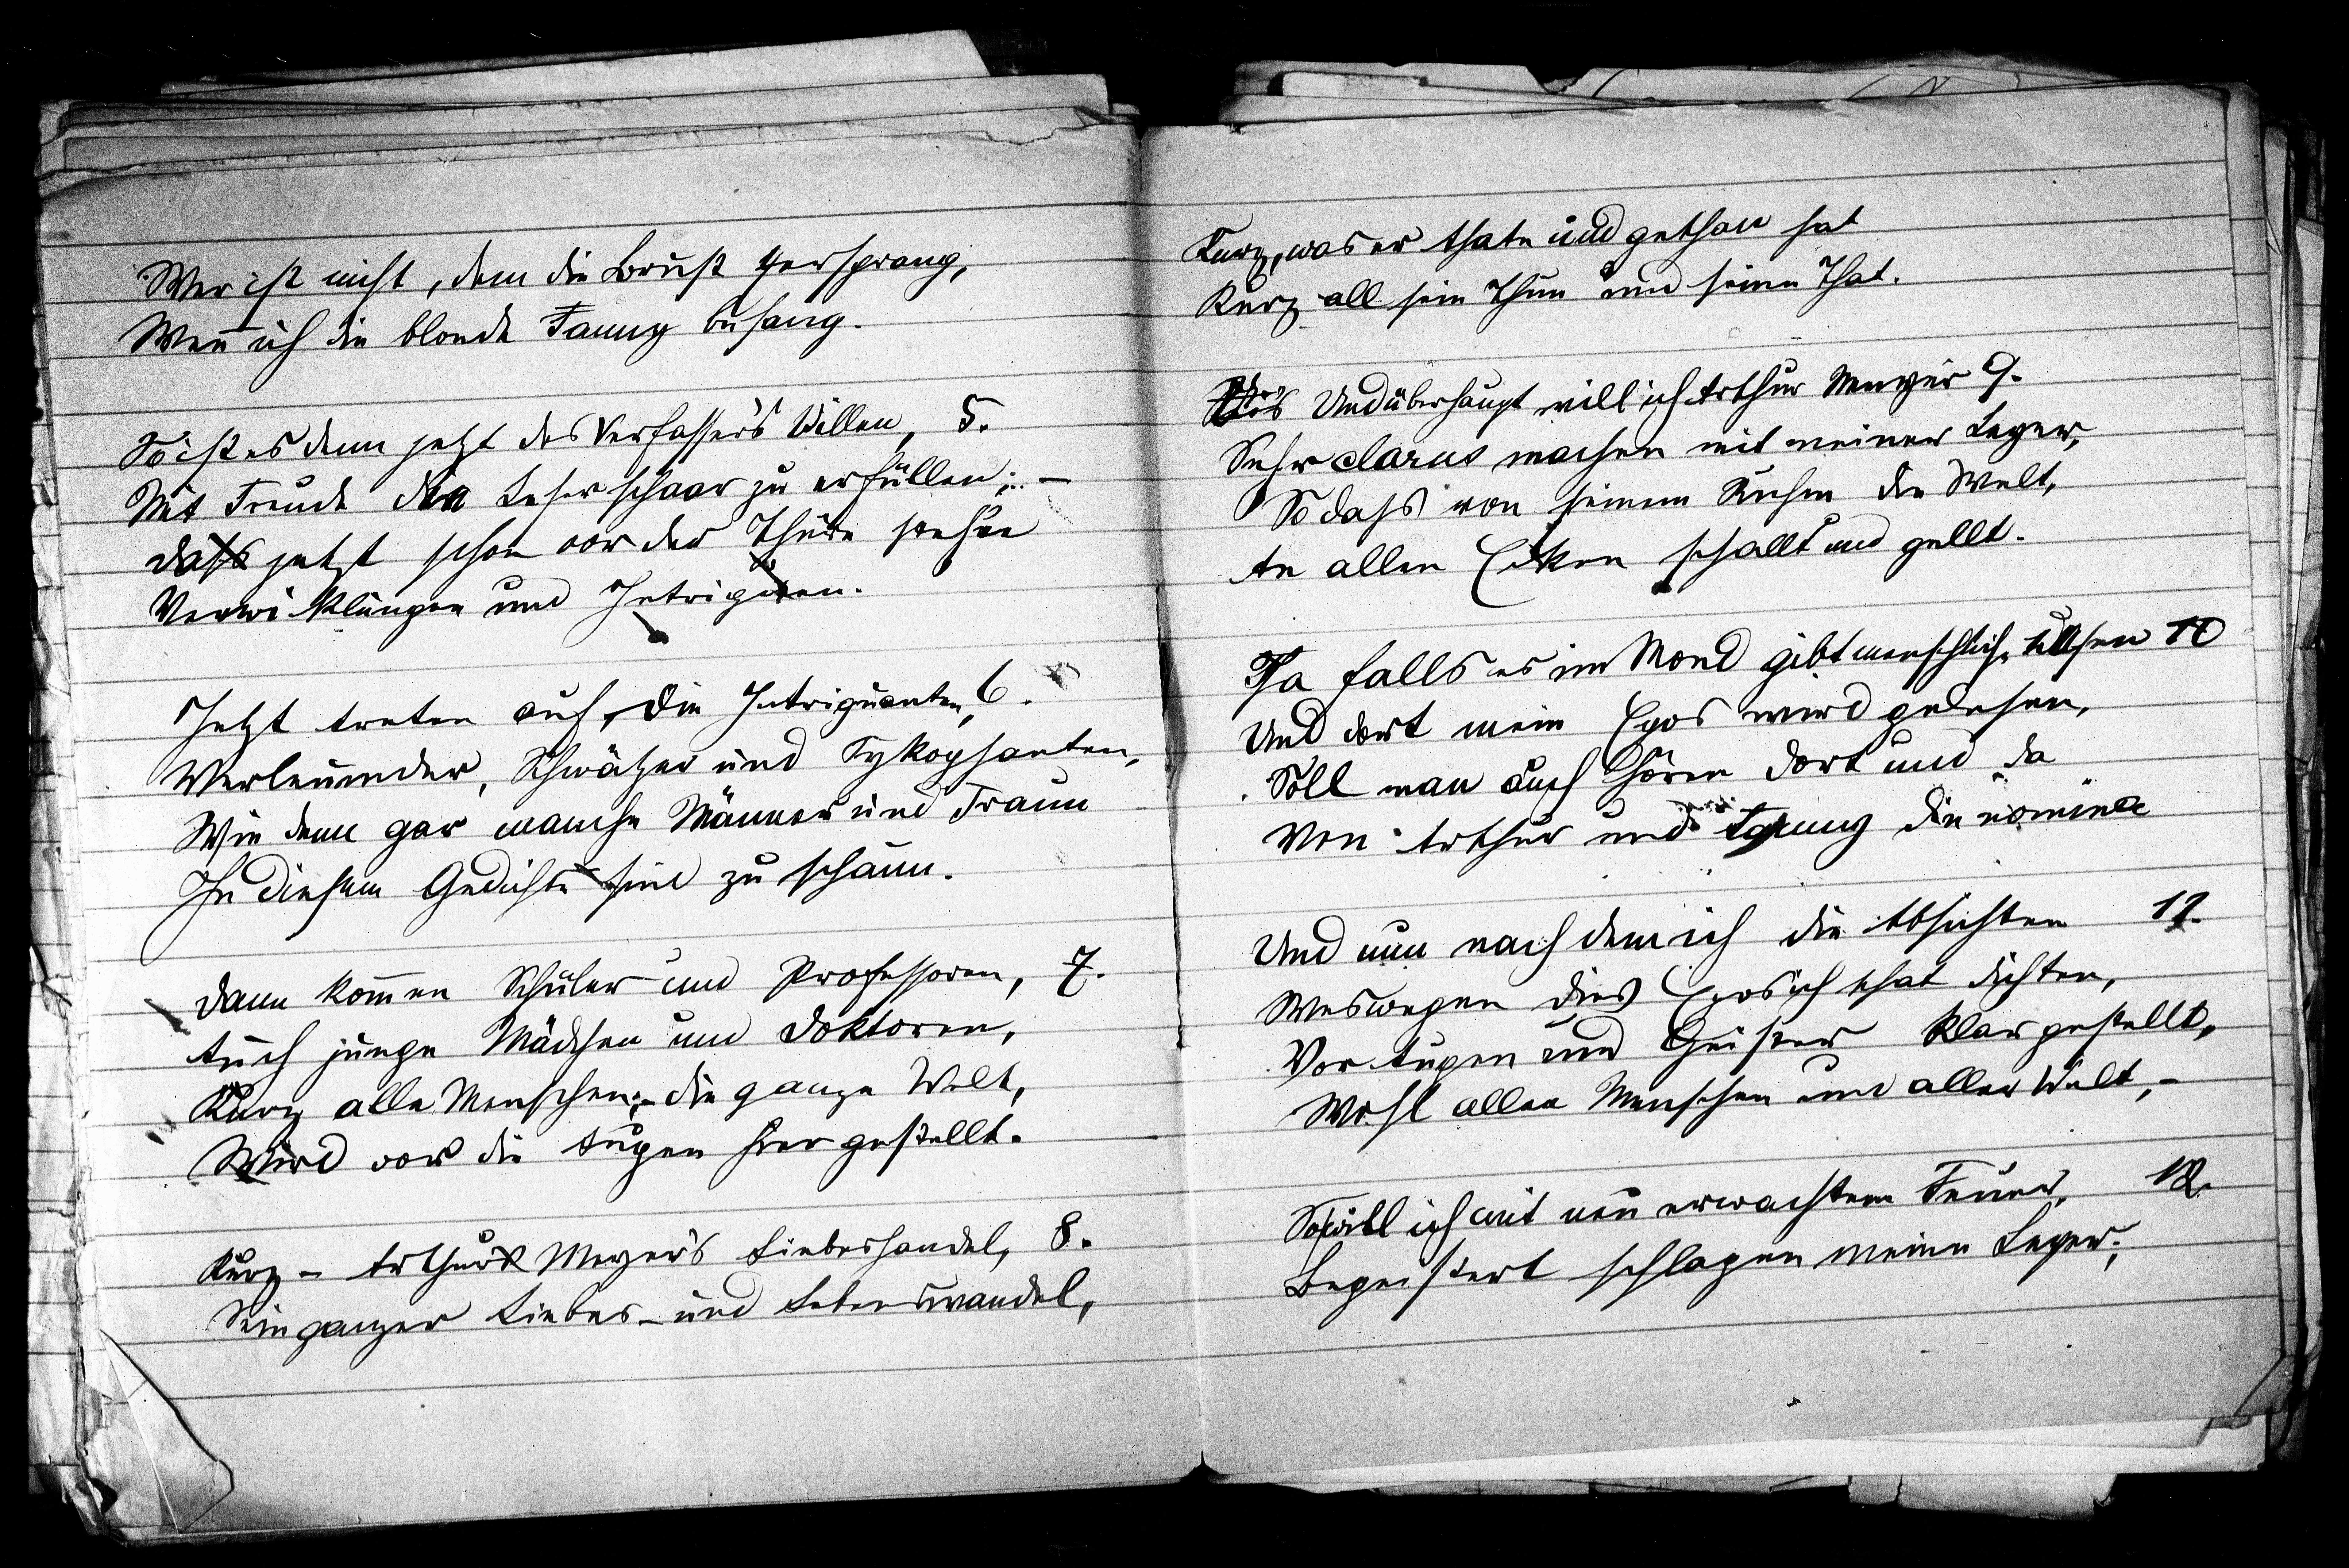 Wer ist nicht, dem die Brust zersprang,
Wenn ich die blonde Fanny besang.
So ist es denn jetzt des Verfasser's Willen, 5.
Mit Freude die Leserschaar zu erfüllen; –
dass jetzt schon vor der Thüre stehen
Verwicklungen und Intriguen.
Jetzt treten auf, die Intriguanten, 6.
Verleumder, Schwätzer und Sykophanten,
Wie denn gar manche Männer und Fraun
In diesem Gedichte sind zu schaun.
Dann kommen Schüler und Professoren, 7.
Auch junge Mädchen und Doktoren,
Kurz alle Menschen; – die ganze Welt,
Wird vor die Augen hier gestellt.
Kurz – Arthur Meyer's Liebeshandel, 8.
Sein ganzer Liebes- und Lebenswandel,
Kurz, was er thate und gethan hat
Kurz all sein Thun und seine That.
Und überhaupt will ich Arthur Meyer 9.
Sehr clarus machen mit meiner Leyer,
So dass von seinem Ruhm die Welt,
An allen Ecken schallt und gellt.
Ja falls es im Mond gibt menschliche Wesen 10
Und dort mein Epos wird gelesen,
Soll man auch hören dort und da
Von Arthur und Fanny die nomina
Und nun nach dem ich die Absichten 11.
Weswegen dies Epos ich that dichten,
Vor Augen und Geister klar gestellt,
Wohl allen Menschen und aller Welt, –
So will ich mit neu erwachtem Feuer, 12.
Begeistert schlagen meine Leyer;